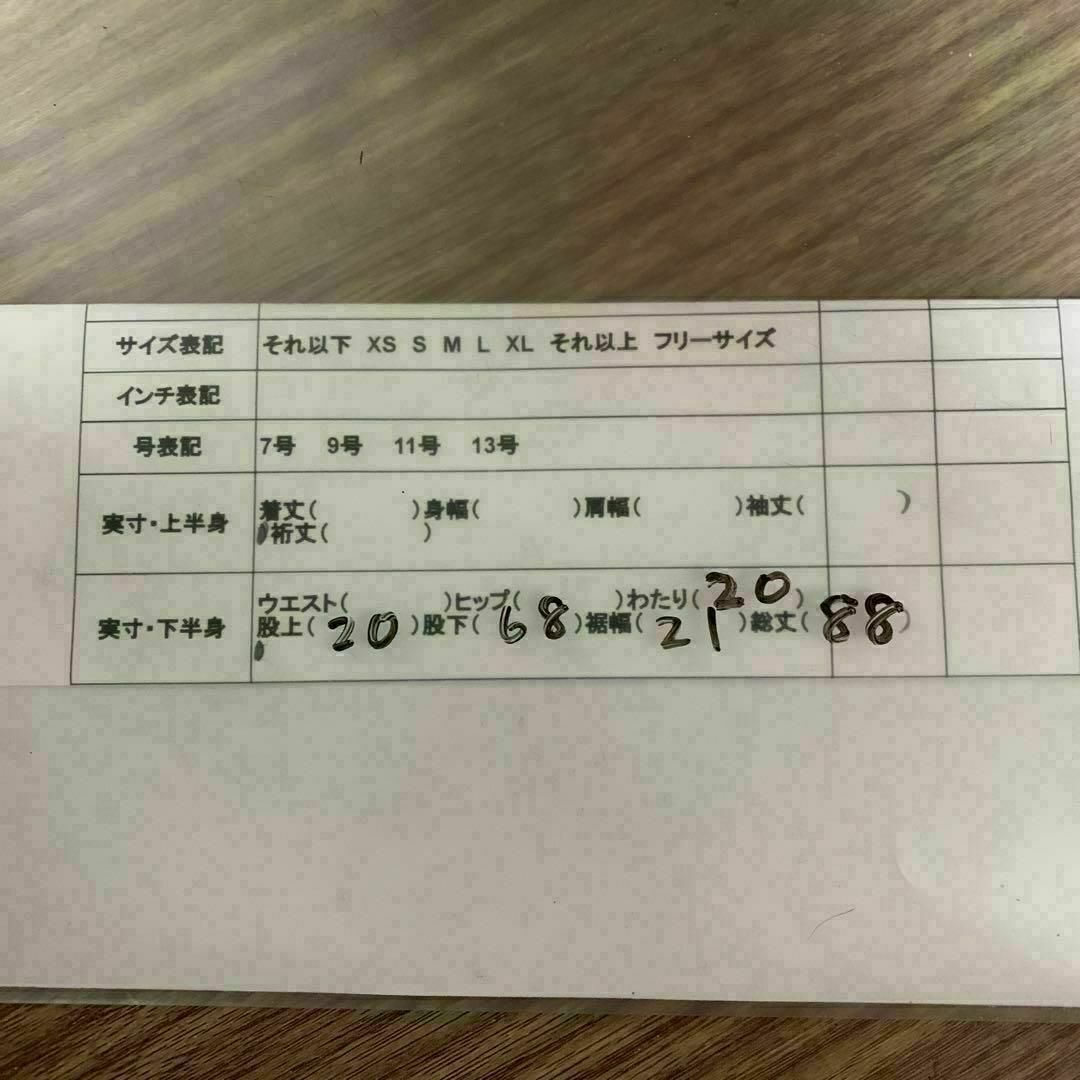 サイズ表記 それ以下 XS S M L XL それ以上 フリーサイズ
インチ表記
号表記 7号 9号 11号 13号
実寸・上半身 着丈( )身幅( )肩幅( )袖丈( )
裄丈( )
実寸・下半身 ウエスト( )ヒップ( )わたり(20)
股上(20)股下(68)裾幅(21)総丈(88)